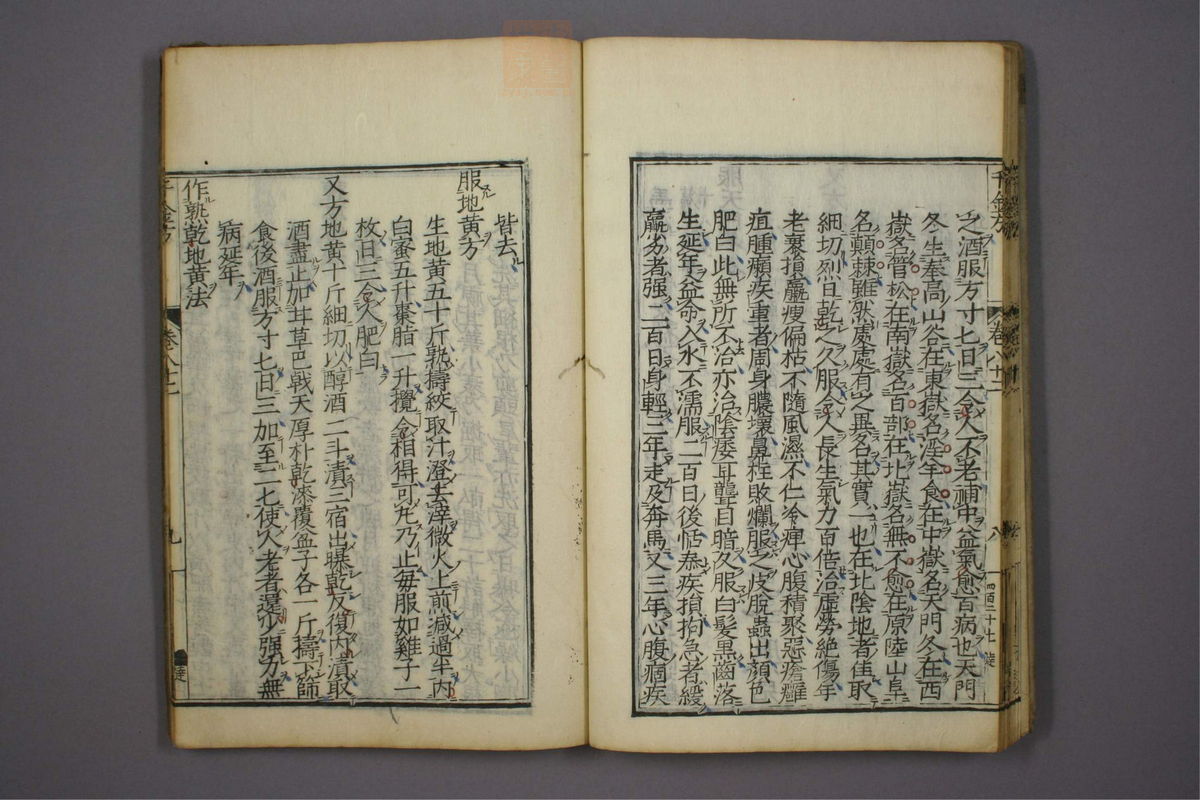 之酒服方寸匕日三令人不老補中益氣愈百病也天門
冬生奉高山谷在東嶽名淫羊食在中嶽名天門冬在西
嶽名管松在南嶽名百部在北嶽名無不愈在原陸山阜
名顛棘雖然處處有之異名其實一也在北陰地者佳取
細切烈日乾之久服令人長生氣力百倍治虛勞絕傷年
老衰損羸瘦偏枯不隨風濕不仁冷痺心腹積聚惡瘡癰
疽腫癩疾重者周身膿壞鼻柱敗爛服之皮脫蟲出顏色
肥白此無所不治亦治陰痿耳聾目暗久服白髮黑齒落
生延年益命入水不濡服二百日後恬泰疾損拘急者緩
羸劣者强二百日身輕三年走及奔馬又三年心腹痼疾
皆去
服地黄方
生地黄五十斤熟擣絞取汁澄去滓微火上煎減過半內
白蜜五升棗脂一升攪令相得可丸乃止每服如雞子一
枚日三令人肥白
又方地黄十斤細切以醇酒二斗漬三宿出曝乾反復內漬取
酒盡止加甘草巴戟天厚朴乾漆覆盆子各一斤擣下篩
食後酒服方寸匕日三加至二匕使人老者還少强力無
病延年
作熟乾地黄法
千金方
卷八十二
八
四百二十七
千金方
卷八十二
九